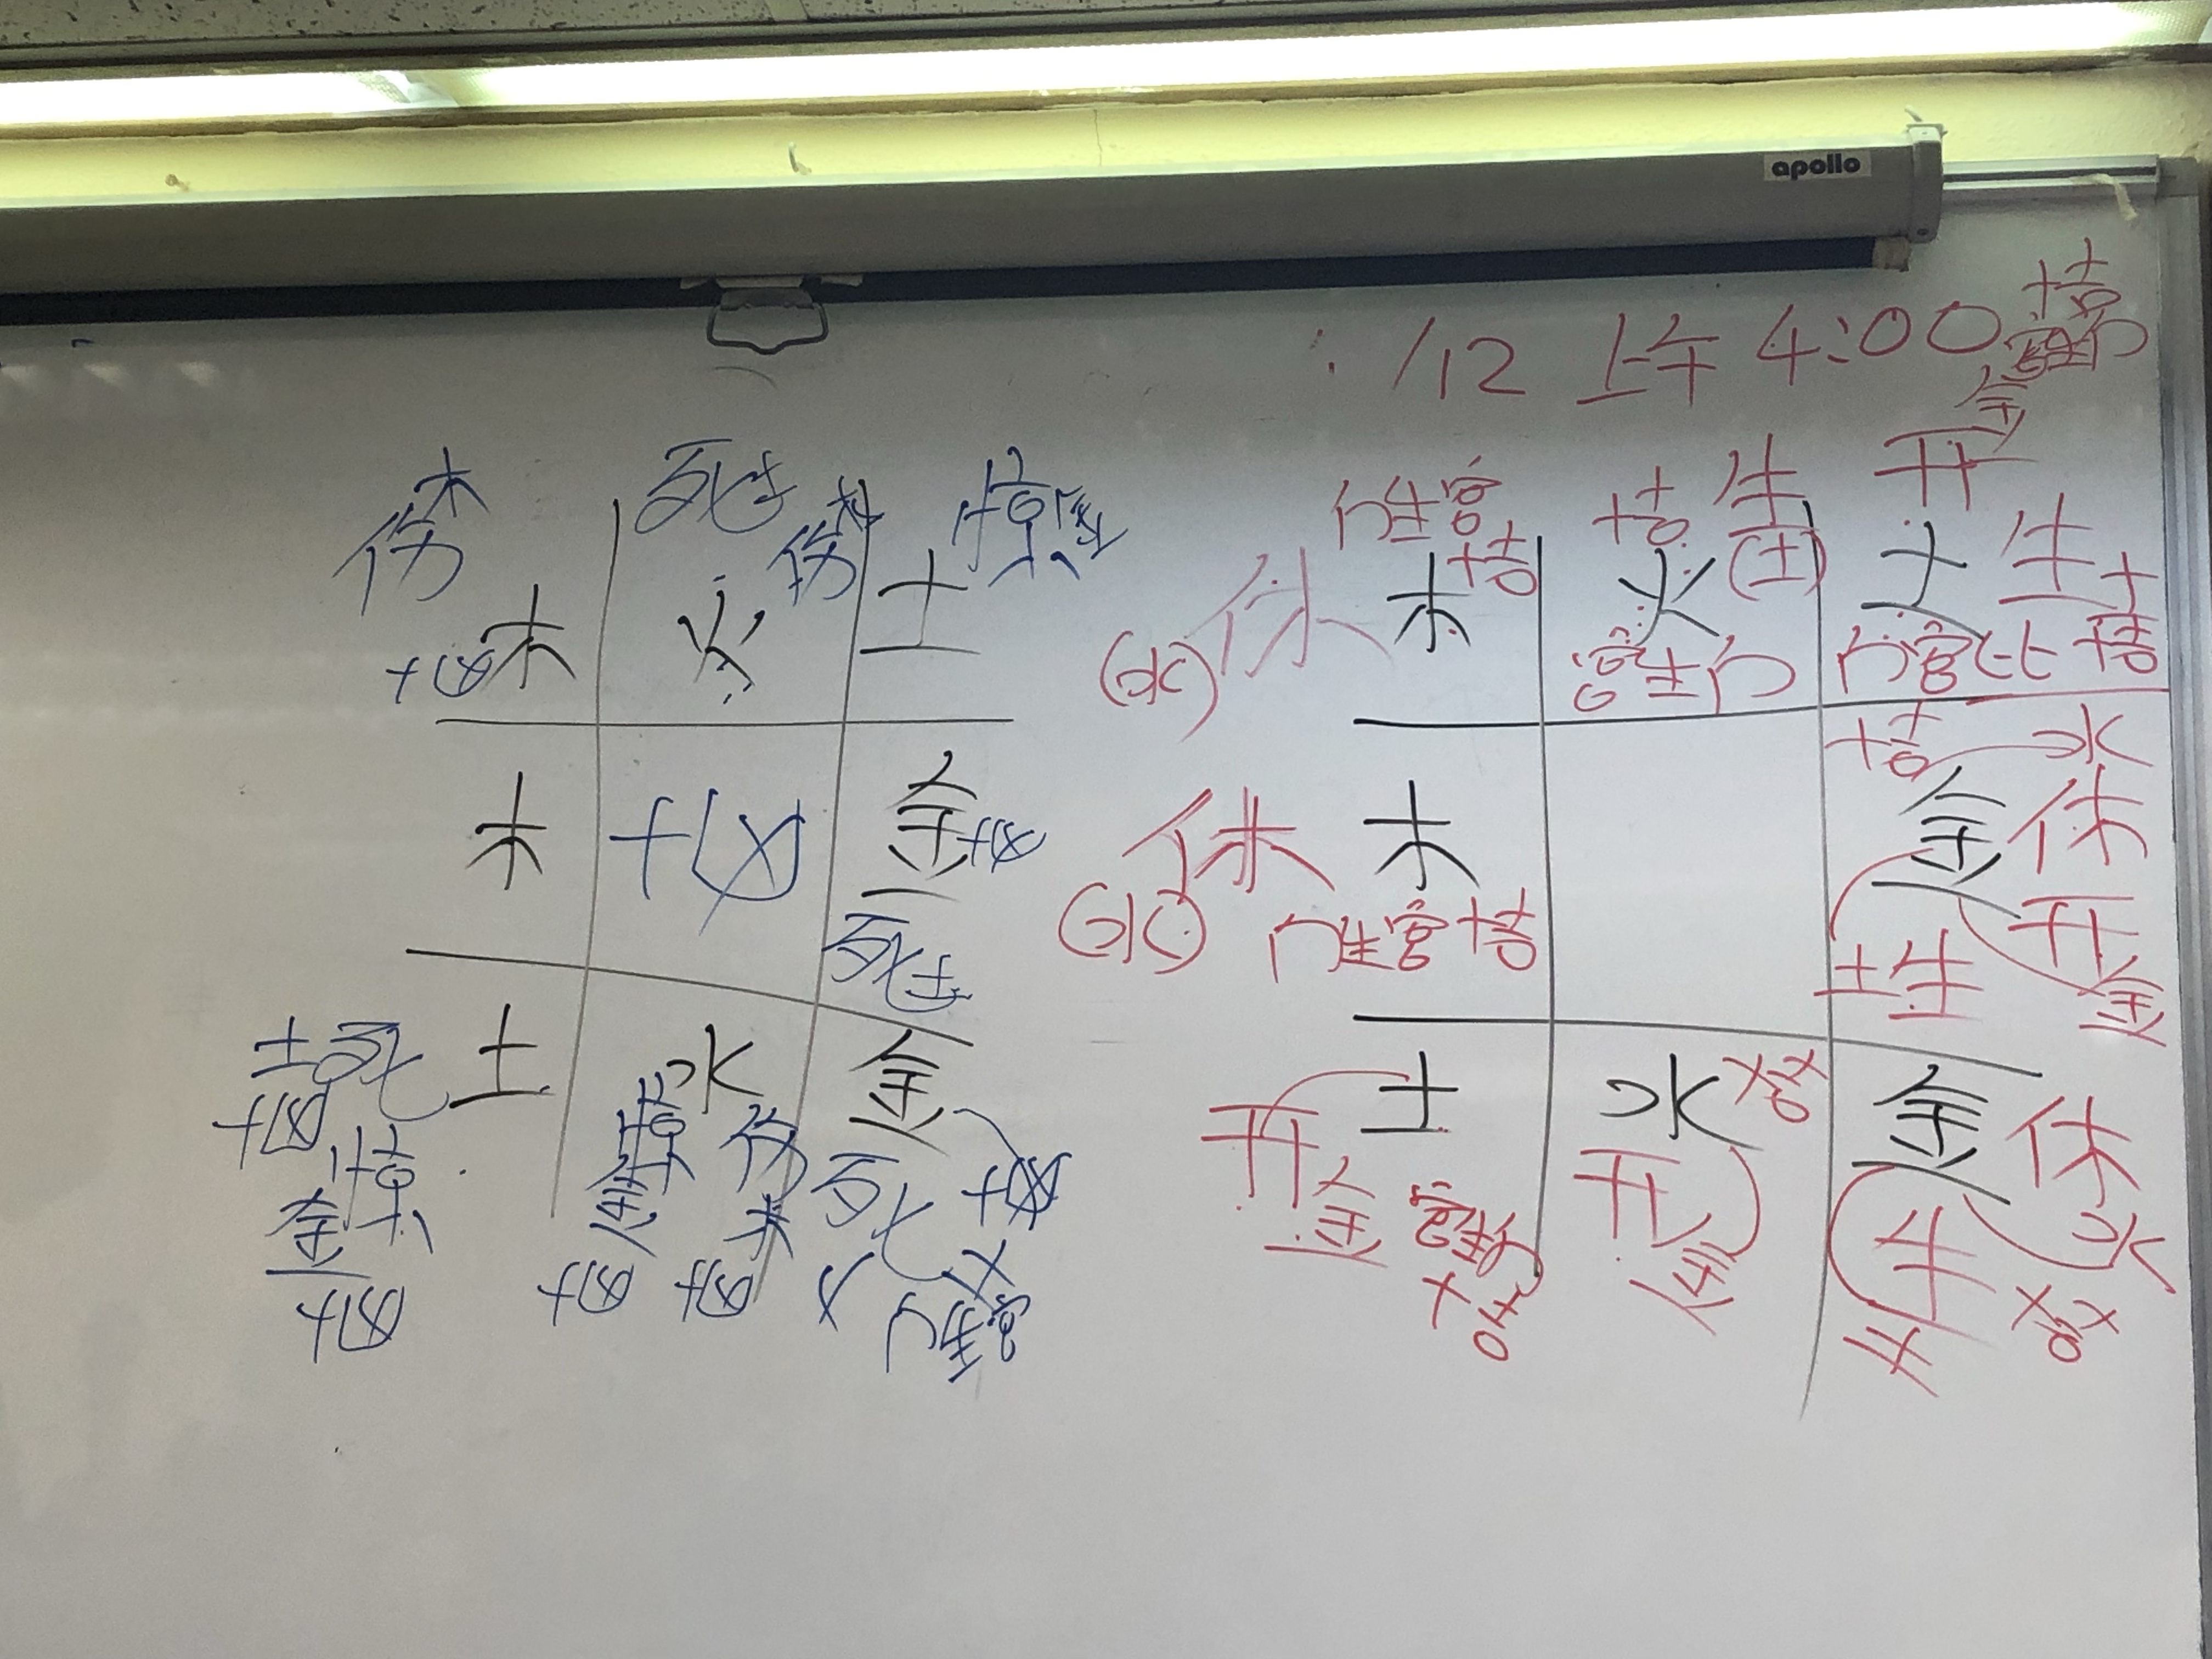 apollo
/12 上午 4:00
伤 木 死土 伤木 惊金
木 火 土
+凶
木 +凶 金 +凶
死土
土 死 土 水 金
+凶 惊 金 惊 伤 木 死 +凶
金 +凶 +凶 +凶 × 门生宫
+凶
+吉
宫生门
金
门生宫 +吉 生 开
休 木 +吉 火 (土) 土 生 土
(水) 宫生门 门宫比 +吉
+吉 水
休 木 金 休
(水) 门生宫 +吉 土生 开 金
土 水 ×吉× 金 休
开 金 开 金 生 土 水
×吉×